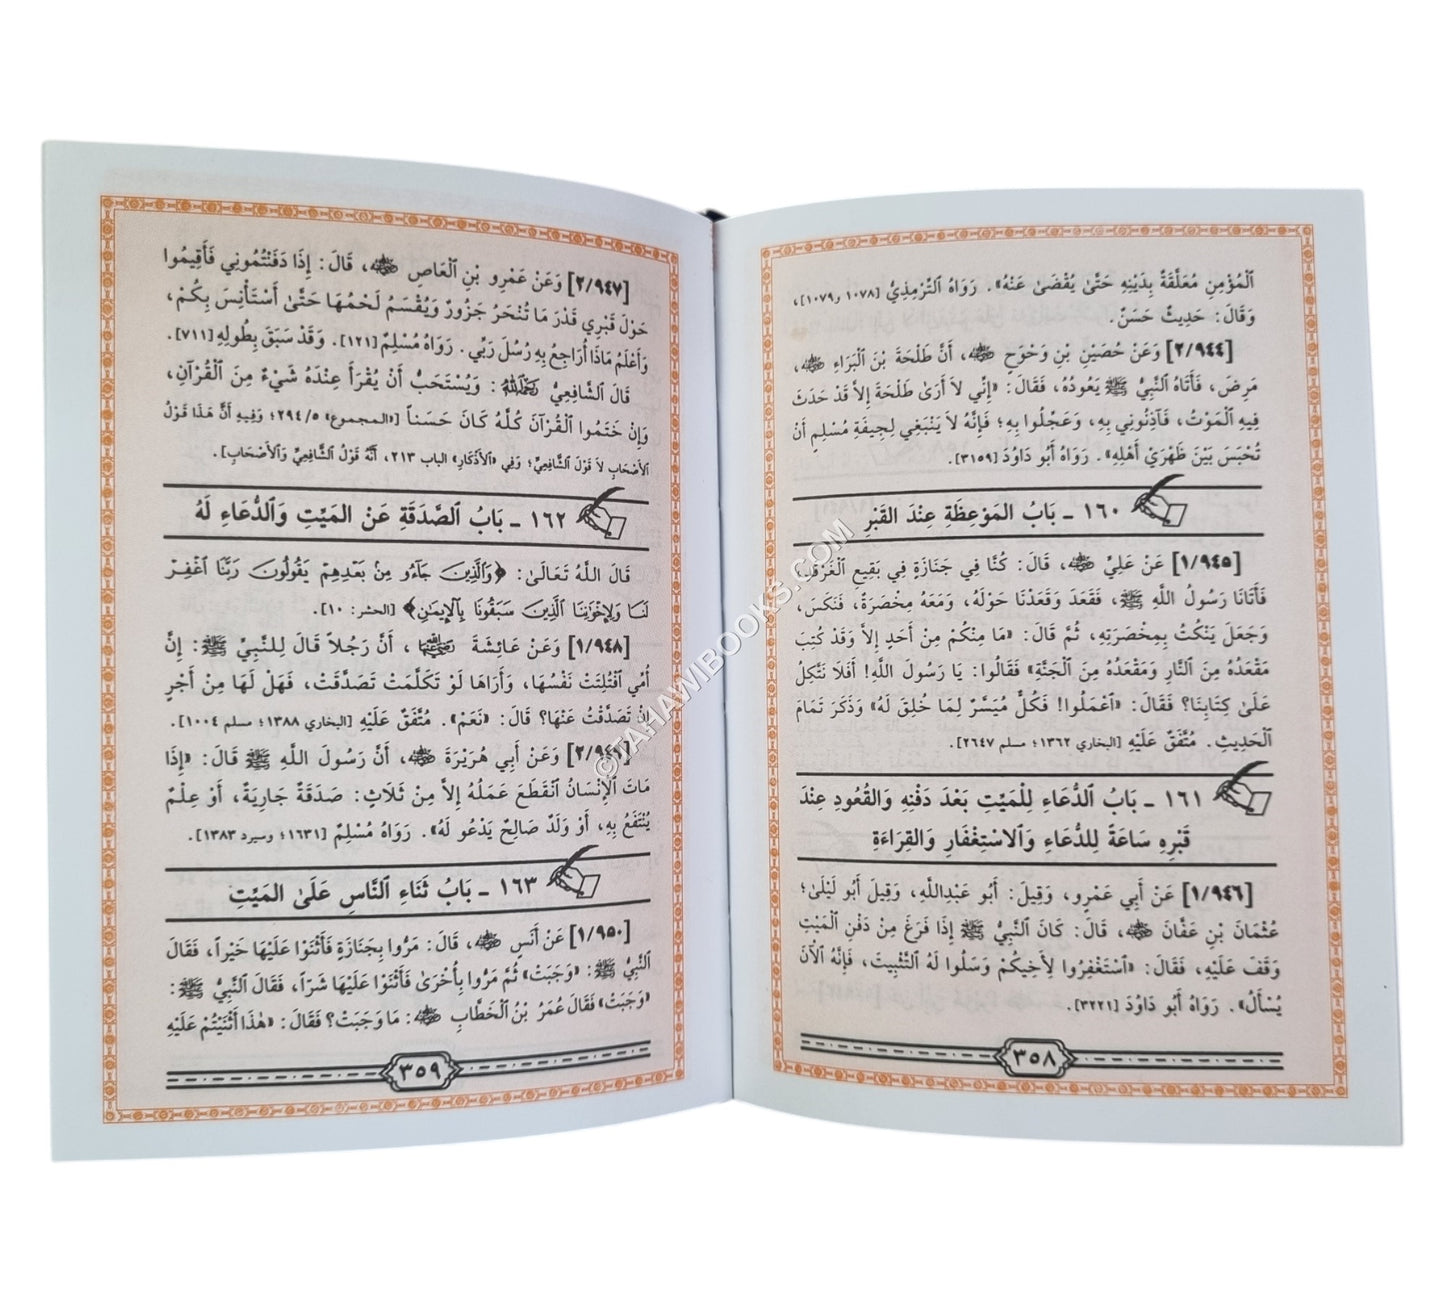 ٱلْمُؤْمِنِ مُعَلَّقَةٌ بِدَيْنِهِ حَتَّىٰ يُقْضَىٰ عَنْهُ». رَوَاهُ ٱلتِّرْمِذِيُّ [١٠٧٨ و١٠٧٩]،
وَقَالَ: حَدِيثٌ حَسَنٌ.
[٢/٩٤٤] وَعَنْ حُصَيْنِ بْنِ وَحْوَحٍ ﷺ، أَنَّ طَلْحَةَ بْنَ ٱلْبَرَاءِ ﷺ،
مَرِضَ، فَأَتَاهُ ٱلنَّبِيُّ ﷺ يَعُودُهُ، فَقَالَ: «إِنِّي لاَ أَرَىٰ طَلْحَةَ إِلاَّ قَدْ حَدَثَ
فِيهِ ٱلْمَوْتُ، فَآذِنُونِي بِهِ، وَعَجِّلُوا بِهِ؛ فَإِنَّهُ لاَ يَنْبَغِي لِجِيفَةِ مُسْلِمٍ أَنْ
تُحْبَسَ بَيْنَ ظَهْرَيْ أَهْلِهِ». رَوَاهُ أَبُو دَاوُدَ [٣١٥٩].
١٦٠ ـ بَابُ المَوْعِظَةِ عِنْدَ القَبْرِ
[١/٩٤٥] عَنْ عَلِيٍّ ، قَالَ: كُنَّا فِي جَنَازَةٍ فِي بَقِيعِ ٱلْغَرْقَدِ،
فَأَتَانَا رَسُولُ اللَّهِ ﷺ، فَقَعَدَ وَقَعَدْنَا حَوْلَهُ، وَمَعَهُ مِخْصَرَةٌ، فَنَكَسَ،
وَجَعَلَ يَنْكُتُ بِمِخْصَرَتِهِ، ثُمَّ قَالَ: «مَا مِنْكُمْ مِنْ أَحَدٍ إِلاَّ وَقَدْ كُتِبَ
مَقْعَدُهُ مِنَ ٱلنَّارِ وَمَقْعَدُهُ مِنَ ٱلْجَنَّةِ» فَقَالُوا: يَا رَسُولَ اللَّهِ! أَفَلاَ نَتَّكِلُ
عَلَىٰ كِتَابِنَا؟ فَقَالَ: «ٱعْمَلُوا! فَكُلٌّ مُيَسَّرٌ لِمَا خُلِقَ لَهُ» وَذَكَرَ تَمَامَ
ٱلْحَدِيثِ. مُتَّفَقٌ عَلَيْهِ [البخاري ١٣٦٢؛ مسلم ٢٦٤٧].
١٦١ ـ بَابُ ٱلدُّعَاءِ لِلْمَيِّتِ بَعْدَ دَفْنِهِ وَالقُعُودِ عِنْدَ
قَبْرِهِ سَاعَةً لِلدُّعَاءِ وَٱلاسْتِغْفَارِ وَالقِرَاءَةِ
[١/٩٤٦] عَنْ أَبِي عَمْرٍو، وَقِيلَ: أَبُو عَبْدِاللَّهِ، وَقِيلَ أَبُو لَيْلَىٰ؛
عُثْمَانَ بْنِ عَفَّانَ ، قَالَ: كَانَ ٱلنَّبِيُّ ﷺ إِذَا فَرَغَ مِنْ دَفْنِ ٱلْمَيِّتِ
وَقَفَ عَلَيْهِ، فَقَالَ: «ٱسْتَغْفِرُوا لِأَخِيكُمْ وَسَلُوا لَهُ ٱلتَّثْبِيتَ، فَإِنَّهُ ٱلْآنَ
يُسْأَلُ». رَوَاهُ أَبُو دَاوُدَ [٣٢٢١].
٣٥٨
[٢/٩٤٧] وَعَنْ عَمْرِو بْنِ ٱلْعَاصِ ، قَالَ: إِذَا دَفَنْتُمُونِي فَأَقِيمُوا
حَوْلَ قَبْرِي قَدْرَ مَا تُنْحَرُ جَزُورٌ وَيُقْسَمُ لَحْمُهَا حَتَّىٰ أَسْتَأْنِسَ بِكُمْ،
وَأَعْلَمُ مَاذَا أُرَاجِعُ بِهِ رُسُلَ رَبِّي. رَوَاهُ مُسْلِمٌ [١٢١]. وَقَدْ سَبَقَ بِطُولِهِ [٧١١].
قَالَ ٱلشَّافِعِيُّ رَحِمَهُ اللَّهُ: وَيُسْتَحَبُّ أَنْ يُقْرَأَ عِنْدَهُ شَيْءٌ مِنَ ٱلْقُرْآنِ،
وَإِنْ خَتَمُوا ٱلْقُرْآنَ كُلَّهُ كَانَ حَسَناً [«المجموع» ٢٩٤/٥؛ وَفِيهِ أَنَّ هَذَا قَوْلُ
ٱلأَصْحَابِ لاَ قَوْلَ ٱلشَّافِعِيِّ؛ وَفِي «ٱلأَذْكَارِ» الباب ٢١٣، أَنَّهُ قَوْلُ ٱلشَّافِعِيِّ وَٱلأَصْحَابِ].
١٦٢ ـ بَابُ ٱلصَّدَقَةِ عَنْ المَيِّتِ وَٱلدُّعَاءِ لَهُ
قَالَ اللَّهُ تَعَالَىٰ: ﴿وَٱلَّذِينَ جَآءُو مِنْ بَعْدِهِمْ يَقُولُونَ رَبَّنَا ٱغْفِرْ
لَنَا وَلِإِخْوَٰنِنَا ٱلَّذِينَ سَبَقُونَا بِٱلْإِيمَٰنِ﴾ [الحشر: ١٠].
[١/٩٤٨] وَعَنْ عَائِشَةَ ، أَنَّ رَجُلاً قَالَ لِلنَّبِيِّ ﷺ: إِنَّ
أُمِّي ٱفْتُلِتَتْ نَفْسُهَا، وَأَرَاهَا لَوْ تَكَلَّمَتْ تَصَدَّقَتْ، فَهَلْ لَهَا مِنْ أَجْرٍ
إِنْ تَصَدَّقْتُ عَنْهَا؟ قَالَ: «نَعَمْ». مُتَّفَقٌ عَلَيْهِ [البخاري ١٣٨٨؛ مسلم ١٠٠٤].
[٢/٩٤٩] وَعَنْ أَبِي هُرَيْرَةَ ، أَنَّ رَسُولَ اللَّهِ ﷺ قَالَ: «إِذَا
مَاتَ ٱلْإِنْسَانُ ٱنْقَطَعَ عَمَلُهُ إِلاَّ مِنْ ثَلاَثٍ: صَدَقَةٌ جَارِيَةٌ، أَوْ عِلْمٌ
يُنْتَفَعُ بِهِ، أَوْ وَلَدٌ صَالِحٌ يَدْعُو لَهُ». رَوَاهُ مُسْلِمٌ [١٦٣١؛ وسيرد ١٣٨٣].
١٦٣ ـ بَابُ ثَنَاءِ ٱلنَّاسِ عَلَىٰ المَيِّتِ
[١/٩٥٠] عَنْ أَنَسٍ ، قَالَ: مَرُّوا بِجَنَازَةٍ فَأَثْنَوْا عَلَيْهَا خَيْراً، فَقَالَ
ٱلنَّبِيُّ ﷺ: «وَجَبَتْ» ثُمَّ مَرُّوا بِأُخْرَىٰ فَأَثْنَوْا عَلَيْهَا شَرّاً، فَقَالَ ٱلنَّبِيُّ ﷺ:
«وَجَبَتْ» فَقَالَ عُمَرُ بْنُ ٱلْخَطَّابِ : مَا وَجَبَتْ؟ فَقَالَ: «هٰذَا أَثْنَيْتُمْ عَلَيْهِ
٣٥٩
©TAHAWIBOOKS.COM